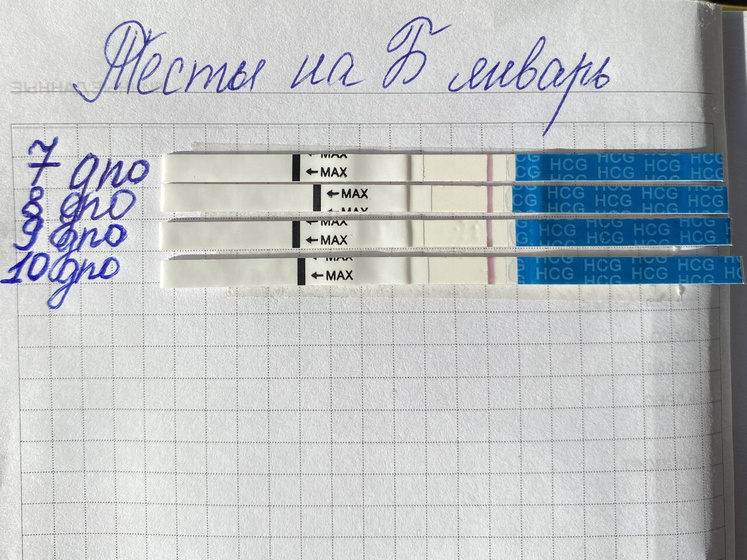 Тесты на Б январь
7 дпо
MAX
MAX
HCG HCG HCG
HCG HCG HCG HCG
8 дпо
MAX
MAX
HCG HCG HCG
HCG HCG HCG HCG
9 дпо
MAX
MAX
HCG HCG HCG
HCG HCG HCG HCG
10 дпо
MAX
MAX
HCG HCG HCG
HCG HCG HCG HCG